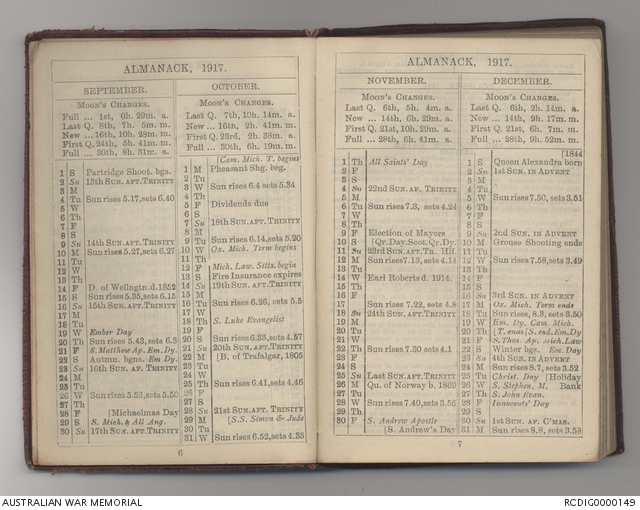 ALMANACK, 1917.
SEPTEMBER.
Moon's Changes.
Full ... 1st, 0h. 29m. a.
Last Q. 8th, 7h. 5m. m.
New ... 16th, 10h. 28m. m.
First Q. 24th, 5h. 41m. m.
Full ... 30th, 8h. 31m. a.
1 S Partridge Shoot. bgs.
2 Su 13th Sun. aft. Trinity
3 M
4 Tu Sun rises 5.17, sets 6.40
5 W
6 Th
7 F
8 S
9 Su 14th Sun. aft. Trinity
10 M Sun rises 5.27, sets 6.27
11 Tu
12 W
13 Th
14 F D. of Wellngtn. d. 1852
15 S Sun rises 5.35, sets 6.15
16 Su 15th Sun. aft. Trinity
17 M
18 Tu
19 W Ember Day
20 Th Sun rises 5.43, sets 6.3
21 F S. Matthew Ap. Em. Dy.
22 S Autmn. bgns. Em. Dy
23 Su 16th Sun. aft. Trinity
24 M
25 Tu
26 W Sun rises 5.53, sets 5.50
27 Th
28 F [Michaelmas Day
29 S S. Mich. & All Ang.
30 Su 17th Sun. aft. Trinity
OCTOBER.
Moon's Changes.
Last Q. 7th, 10h. 14m. a.
New ... 16th, 2h. 41m. m.
First Q. 23rd, 2h. 38m. a.
Full ... 30th, 6h. 19m. m.
[Cam. Mich. T. begins
1 M Pheasant Shg. beg.
2 Tu
3 W Sun rises 6.4 sets 5.34
4 Th
5 F Dividends due
6 S
7 Su 18th Sun. aft. Trinity
8 M
9 Tu Sun rises 6.14, sets 5.20
10 W Ox. Mich. Term begins
11 Th
12 F Mich. Law. Sitts. begin
13 S Fire Insurance expires
14 Su 19th Sun. aft. Trinity
15 M
16 Tu Sun rises 6.26, sets 5.5
17 W
18 Th S. Luke Evangelist
19 F
20 S Sun rises 6.33, sets 4.57
21 Su 20th Sun. aft. Trinity
22 M [B. of Trafalgar, 1805
23 Tu
24 W
25 Th Sun rises 6.41, sets 4.46
26 F
27 S
28 Su 21st Sun. aft. Trinity
29 M [S.S. Simon & Jude
30 Tu
31 W Sun rises 6.52, sets 4.35
6
ALMANACK, 1917.
NOVEMBER.
Moon's Changes.
Last Q. 6th, 5h. 4m. a.
New ... 14th, 6h. 29m. a.
First Q. 21st, 10h. 29m. a.
Full ... 28th, 6h. 41m. a.
1 Th All Saints' Day
2 F
3 S
4 Su 22nd Sun. af. Trinity
5 M
6 Tu Sun rises 7.3, sets 4.24
7 W
8 Th
9 F Election of Mayors
10 S [Qr. Day. Scot. Qr. Dy.
11 Su 23rd Sun. aft. Th. Hlf.
12 M Sun rises 7.13, sets 4.14
13 Tu
14 W Earl Roberts d. 1914.
15 Th
16 F
17 S Sun rises 7.22, sets 4.8
18 Su 24th Sun. aft. Trinity
19 M
20 Tu
21 W
22 Th Sun rises 7.30 sets 4.1
23 F
24 S
25 Su Last Sun. aft. Trinity
26 M Qu. of Norway b. 1869
27 Tu
28 W Sun rises 7.40, sets 3.56
29 Th
30 F S. Andrew Apostle
[S. Andrew's Day
DECEMBER.
Moon's Changes.
Last Q. 6th, 2h. 14m. a.
New ... 14th, 9h. 17m. m.
First Q. 21st, 6h. 7m. m.
Full ... 28th, 9h. 52m. m.
[1844
1 S Queen Alexandra born
2 Su 1st Sun. in Advent
3 M
4 Tu
5 W Sun rises 7.50, sets 3.51
6 Th
7 F
8 S
9 Su 2nd Sun. in Advent
10 M Grouse Shooting ends
11 Tu
12 W Sun rises 7.58, sets 3.49
13 Th
14 F
15 S
16 Su 3rd Sun. in Advent
17 M Ox. Mich. Term ends
18 Tu Sun rises, 8.3, sets 3.50
19 W Em. Dy. Cam. Mich.
20 Th [T. ends
21 F S. Thos. Ap. Mich. Law
22 S Winter bgs. Em. Day
23 Su 4th Sun. in Advent
24 M Sun rises 8.7, sets 3.52
25 Tu Christ. Day [Holiday
26 W S. Stephen, M. Bank
27 Th S. John Evan.
28 F Innocents' Day
29 S
30 Su 1st Sun. af. C'mas.
31 M Sun rises 8.8, sets 3.58
7
AUSTRALIAN WAR MEMORIAL
RCDIG0000149